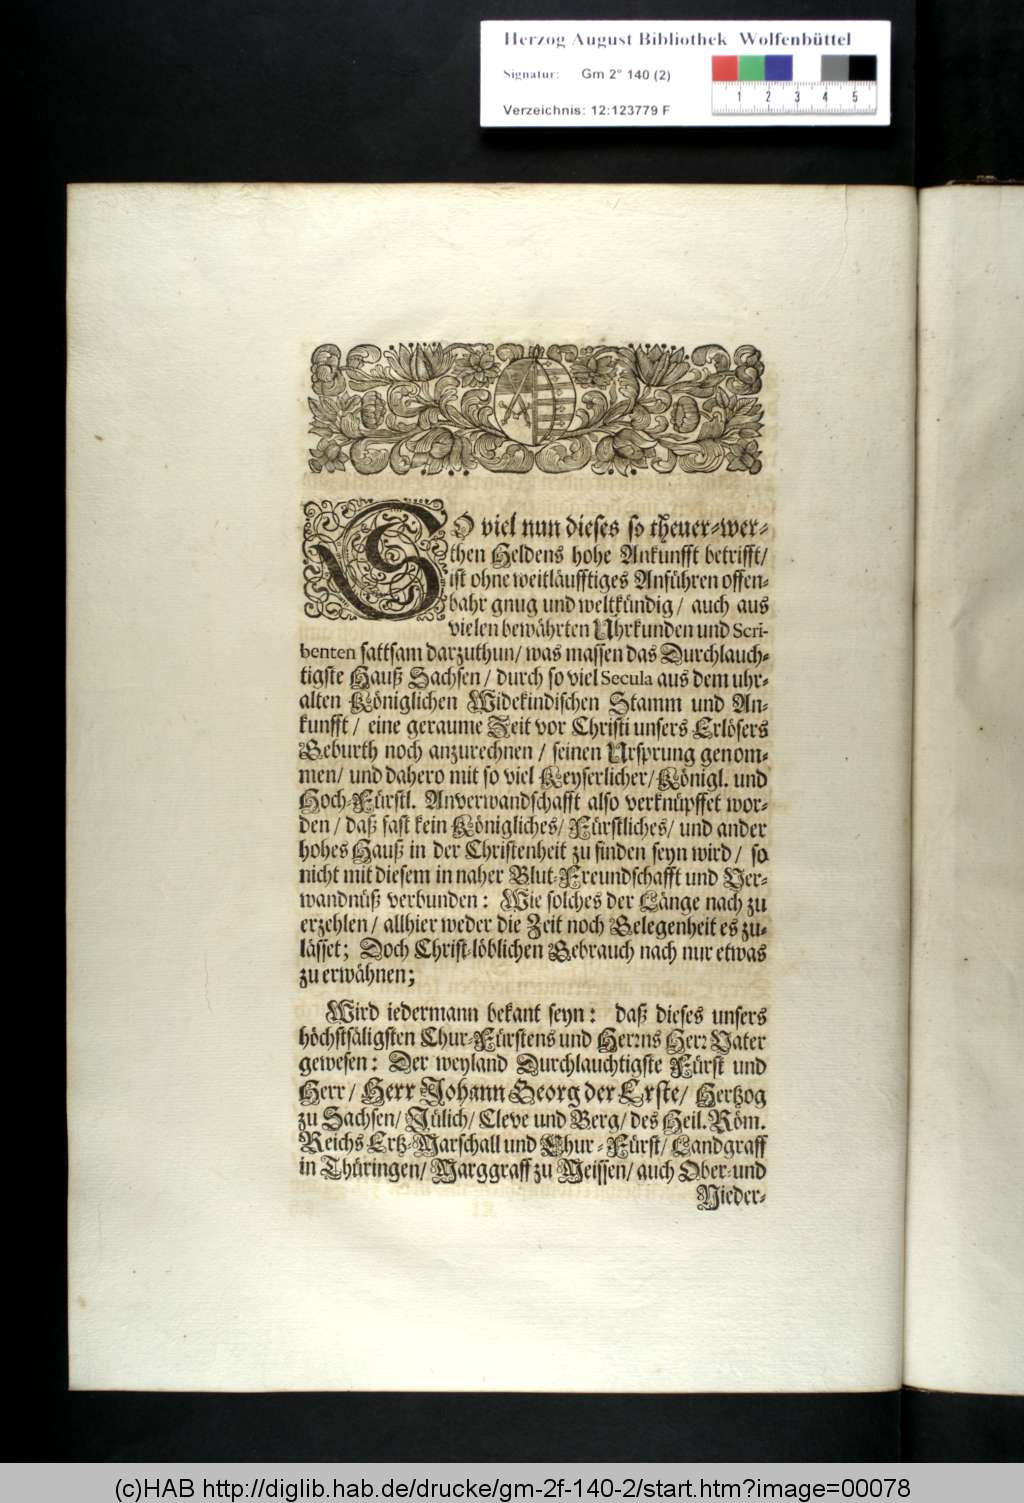 Herzog August Bibliothek Wolfenbüttel
Signatur: Gm 2° 140 (2)
Verzeichnis: 12:123779 F
1 2 3 4 5
SO viel nun dieses so theuer-wer-
then Heldens hohe Ankunfft betrifft/
ist ohne weitläufftiges Anführen offen-
bahr gnug und weltkündig/ auch aus
vielen bewährten Uhrkunden und Scri-
benten sattsam darzuthun/ was massen das Durchlauch-
tigste Hauß Sachsen/ durch so viel Secula aus dem uhr-
alten Königlichen Widekindischen Stamm und An-
kunfft/ eine geraume Zeit vor Christi unsers Erlösers
Geburth noch anzurechnen/ seinen Ursprung genom-
men/ und dahero mit so viel Keyserlicher/ Königl. und
Hoch-Fürstl. Anverwandschafft also verknüpffet wor-
den/ daß fast kein Königliches/ Fürstliches/ und ander
hohes Hauß in der Christenheit zu finden seyn wird/ so
nicht mit diesem in naher Blut-Freundschafft und Ver-
wandnüß verbunden: Wie solches der Länge nach zu
erzehlen/ allhier weder die Zeit noch Gelegenheit es zu-
lässet; Doch Christ-löblichen Gebrauch nach nur etwas
zu erwähnen;
Wird iedermann bekant seyn: daß dieses unsers
höchstsäligsten Chur-Fürstens und Herrns Herr Vater
gewesen: Der weyland Durchlauchtigste Fürst und
Herr/ Herr Johann Georg der Erste/ Hertzog
zu Sachsen/ Jülich/ Cleve und Berg/ des Heil. Röm.
Reichs Ertz-Marschall und Chur-Fürst/ Landgraff
in Thüringen/ Marggraff zu Meissen/ auch Ober-und
Nieder-
(c)HAB http://diglib.hab.de/drucke/gm-2f-140-2/start.htm?image=00078